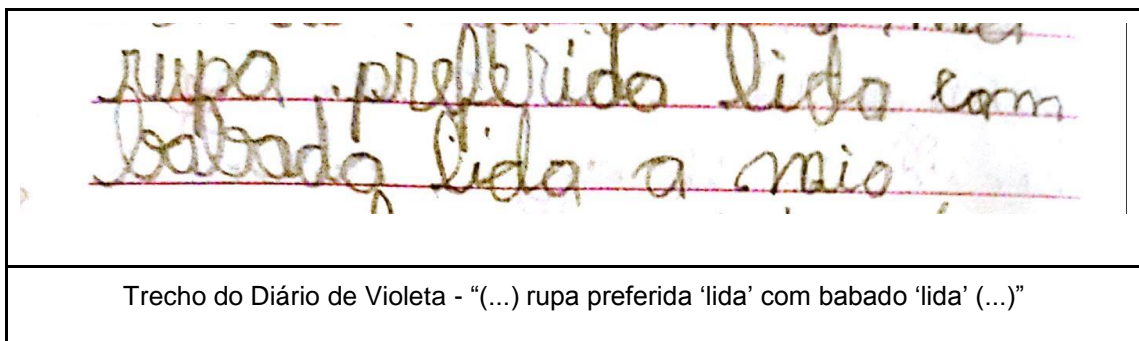 rupa preferida lida com
babada lida a mio
Trecho do Diário de Violeta - “(...) rupa preferida ‘lida’ com babado ‘lida’ (...)”